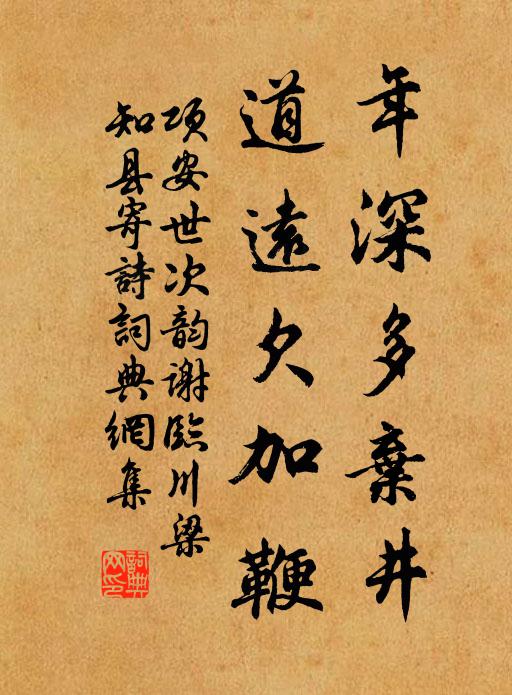 年深多棄井
道遠欠加鞭
項安世次韵謝臨川梁
知县寄詩詞典網集
詞典
网印